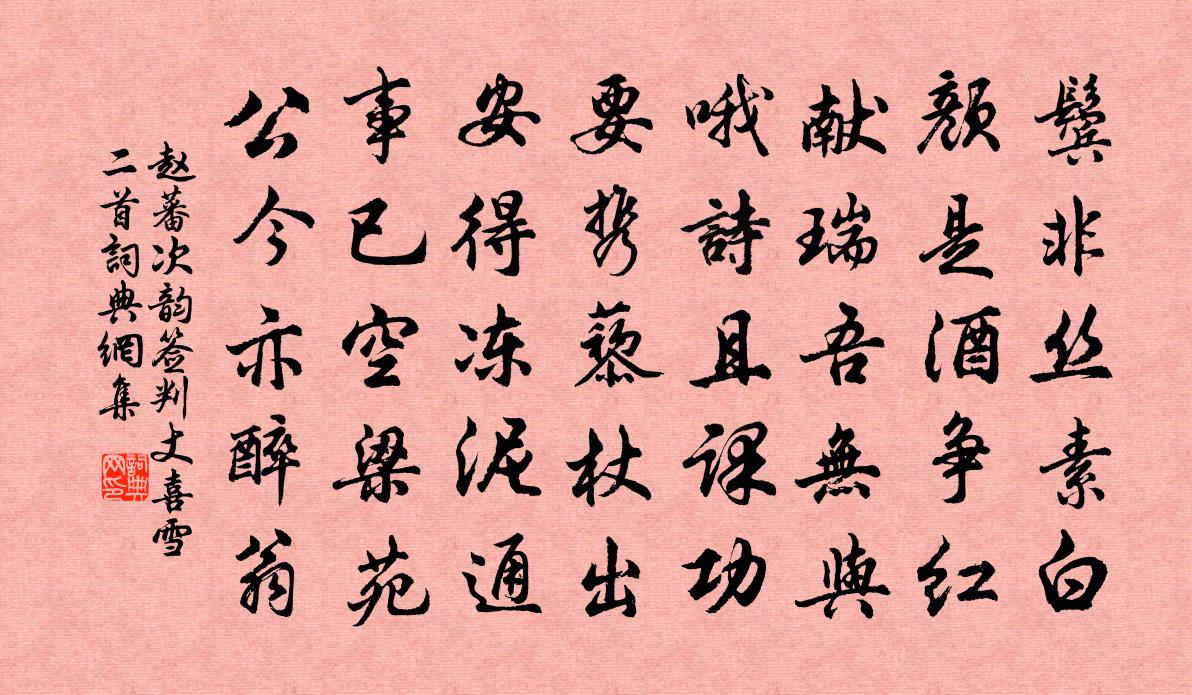 鬓非丝素白
颜是酒争红
献瑞吾無與
哦詩且課功
要携藜杖出
安得冻泥通
事已空梁苑
公今亦醉翁
赵蕃次韵签判丈喜雪
二首詞典網集
詞典
网印